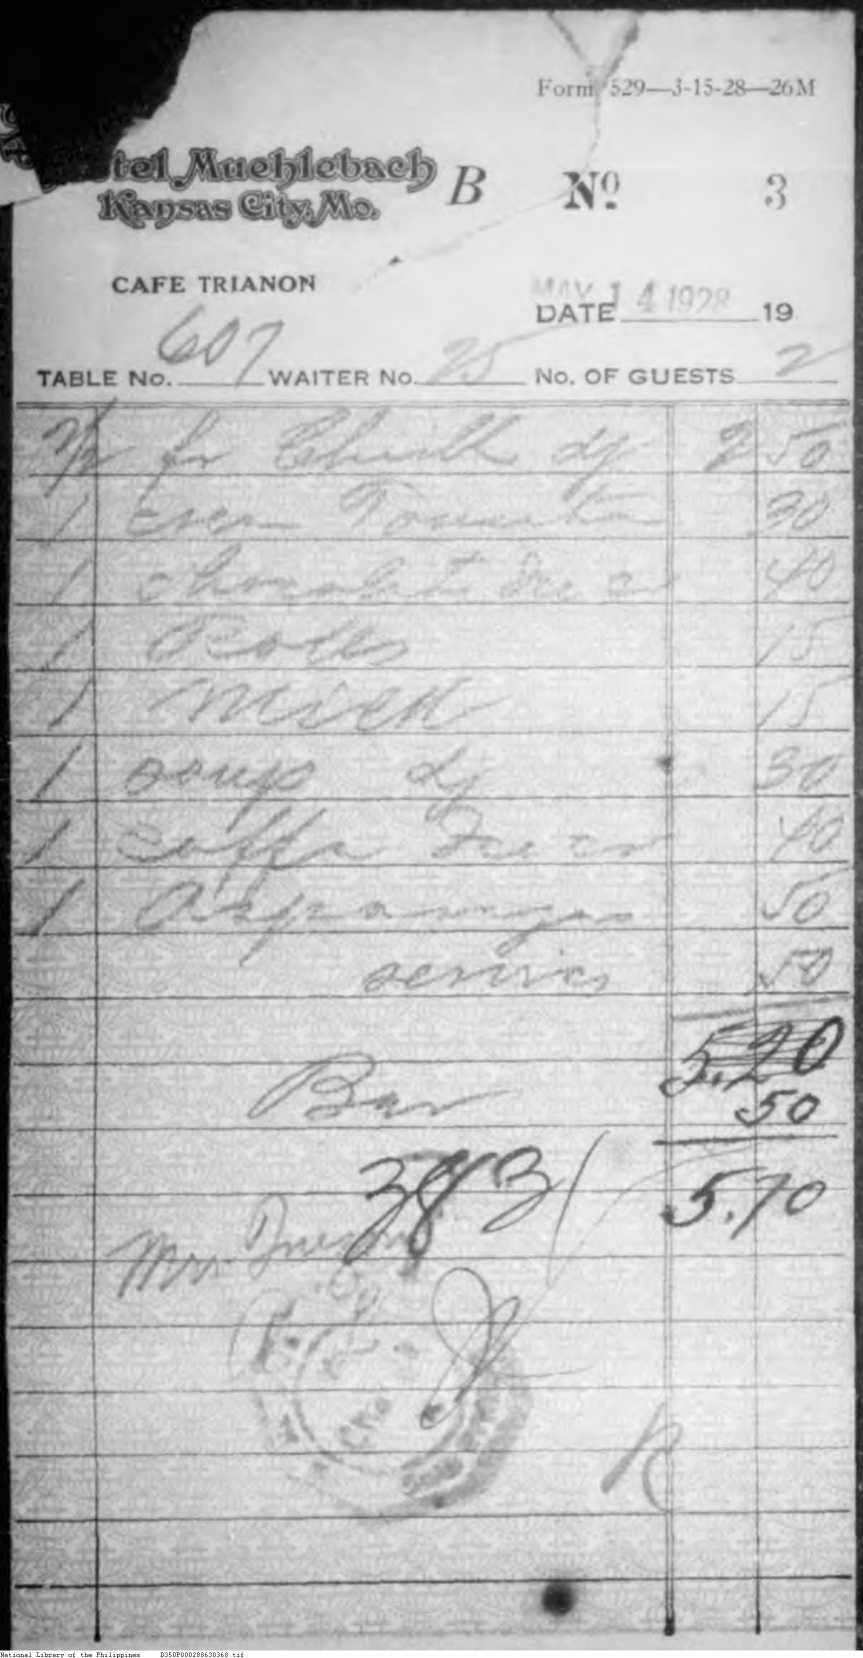 Form 529—3-15-28—26M
tel Muehlebach
Kansas City, Mo.
B No 3
CAFE TRIANON
MAY 14 1928
DATE 19
TABLE No. 607 WAITER No. 25 No. OF GUESTS 2
2 50
1 30
1 40
1 Rolls 15
1 Milk 15
1 soup dj 30
1 40
1 Asparagus 50
service 50
5.20
Bar 50
383 5.70
Mrs.
R
National Library of the Philippines D350P000288630368.tif